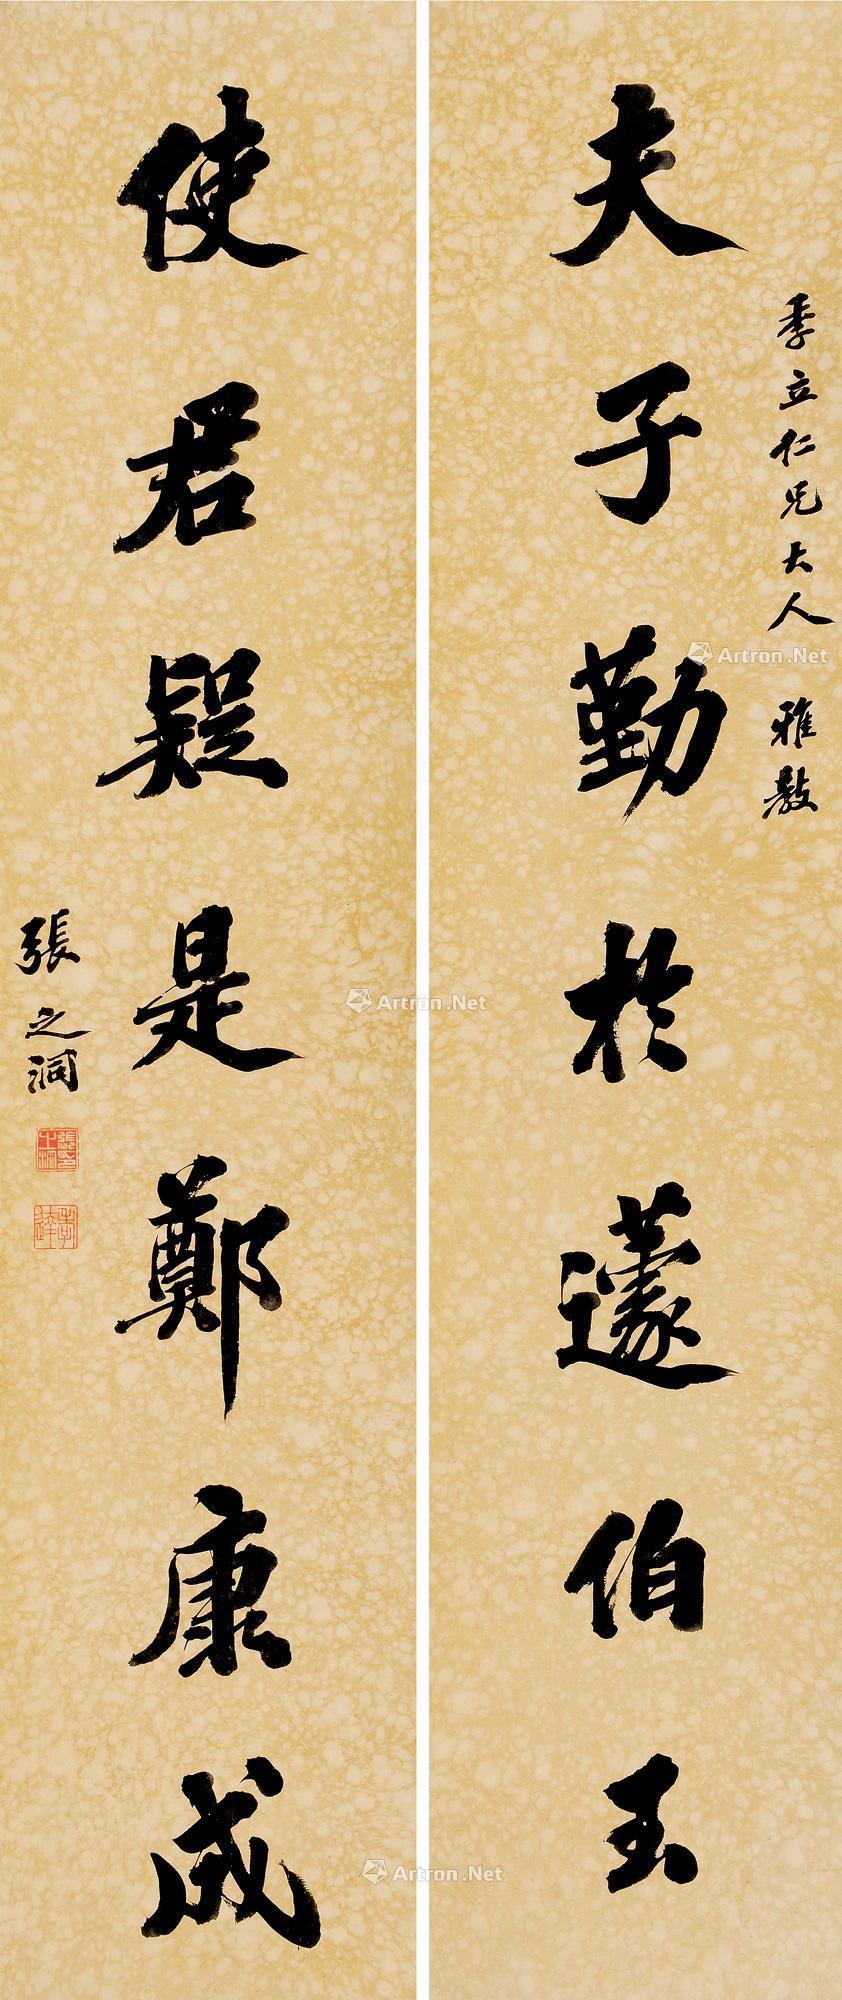 季立仁兄大人 雅教
夫子勤於蘧伯玉
使君疑是鄭康成
張之洞
Artron.Net
Artron.Net
Artron.Net